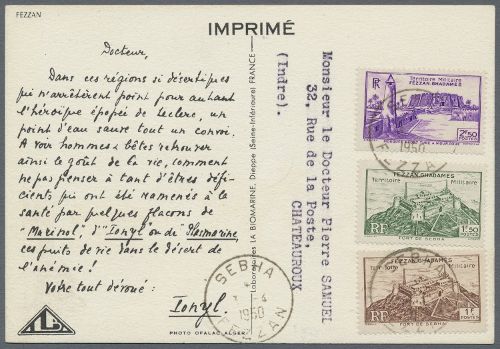 FEZZAN
IMPRIMÉ
Docteur,
Dans ces régions si désertiques
qui n'arrêtèrent point pour autant
l'héroïque épopée de Leclerc, un
point d'eau sauve tout un convoi.
A voir hommes & bêtes retrouver
ainsi le goût de la vie, comment
ne pas penser à tant d'êtres défi-
cients qui ont été ramenés à la
santé par quelques flacons de
"Marinol", d'"Ionyl" ou de Plasmarine,
ces puits de vie dans le désert de
l'anémie!
Votre tout dévoué:
Ionyl.
PHOTO OFALAC, ALGER
Laboratoires LA BIOMARINE, Dieppe (Seine-Inférieure) FRANCE
Monsieur le Docteur Pierre SAMUEL
32, Rue de la Poste,
CHATEAUROUX
(Indre).
RF
Territoire Militaire
FEZZAN-GHADAMES
2F50
POSTES
FEZZAN-GHADAMES
Territoire Militaire
RF
FORT DE SEBHA
1F50
POSTES
FEZZAN-GHADAMES
RF
FORT DE SEBHA
1F
POSTES
SEBHA
1950
FEZZAN
1950
FEZZAN